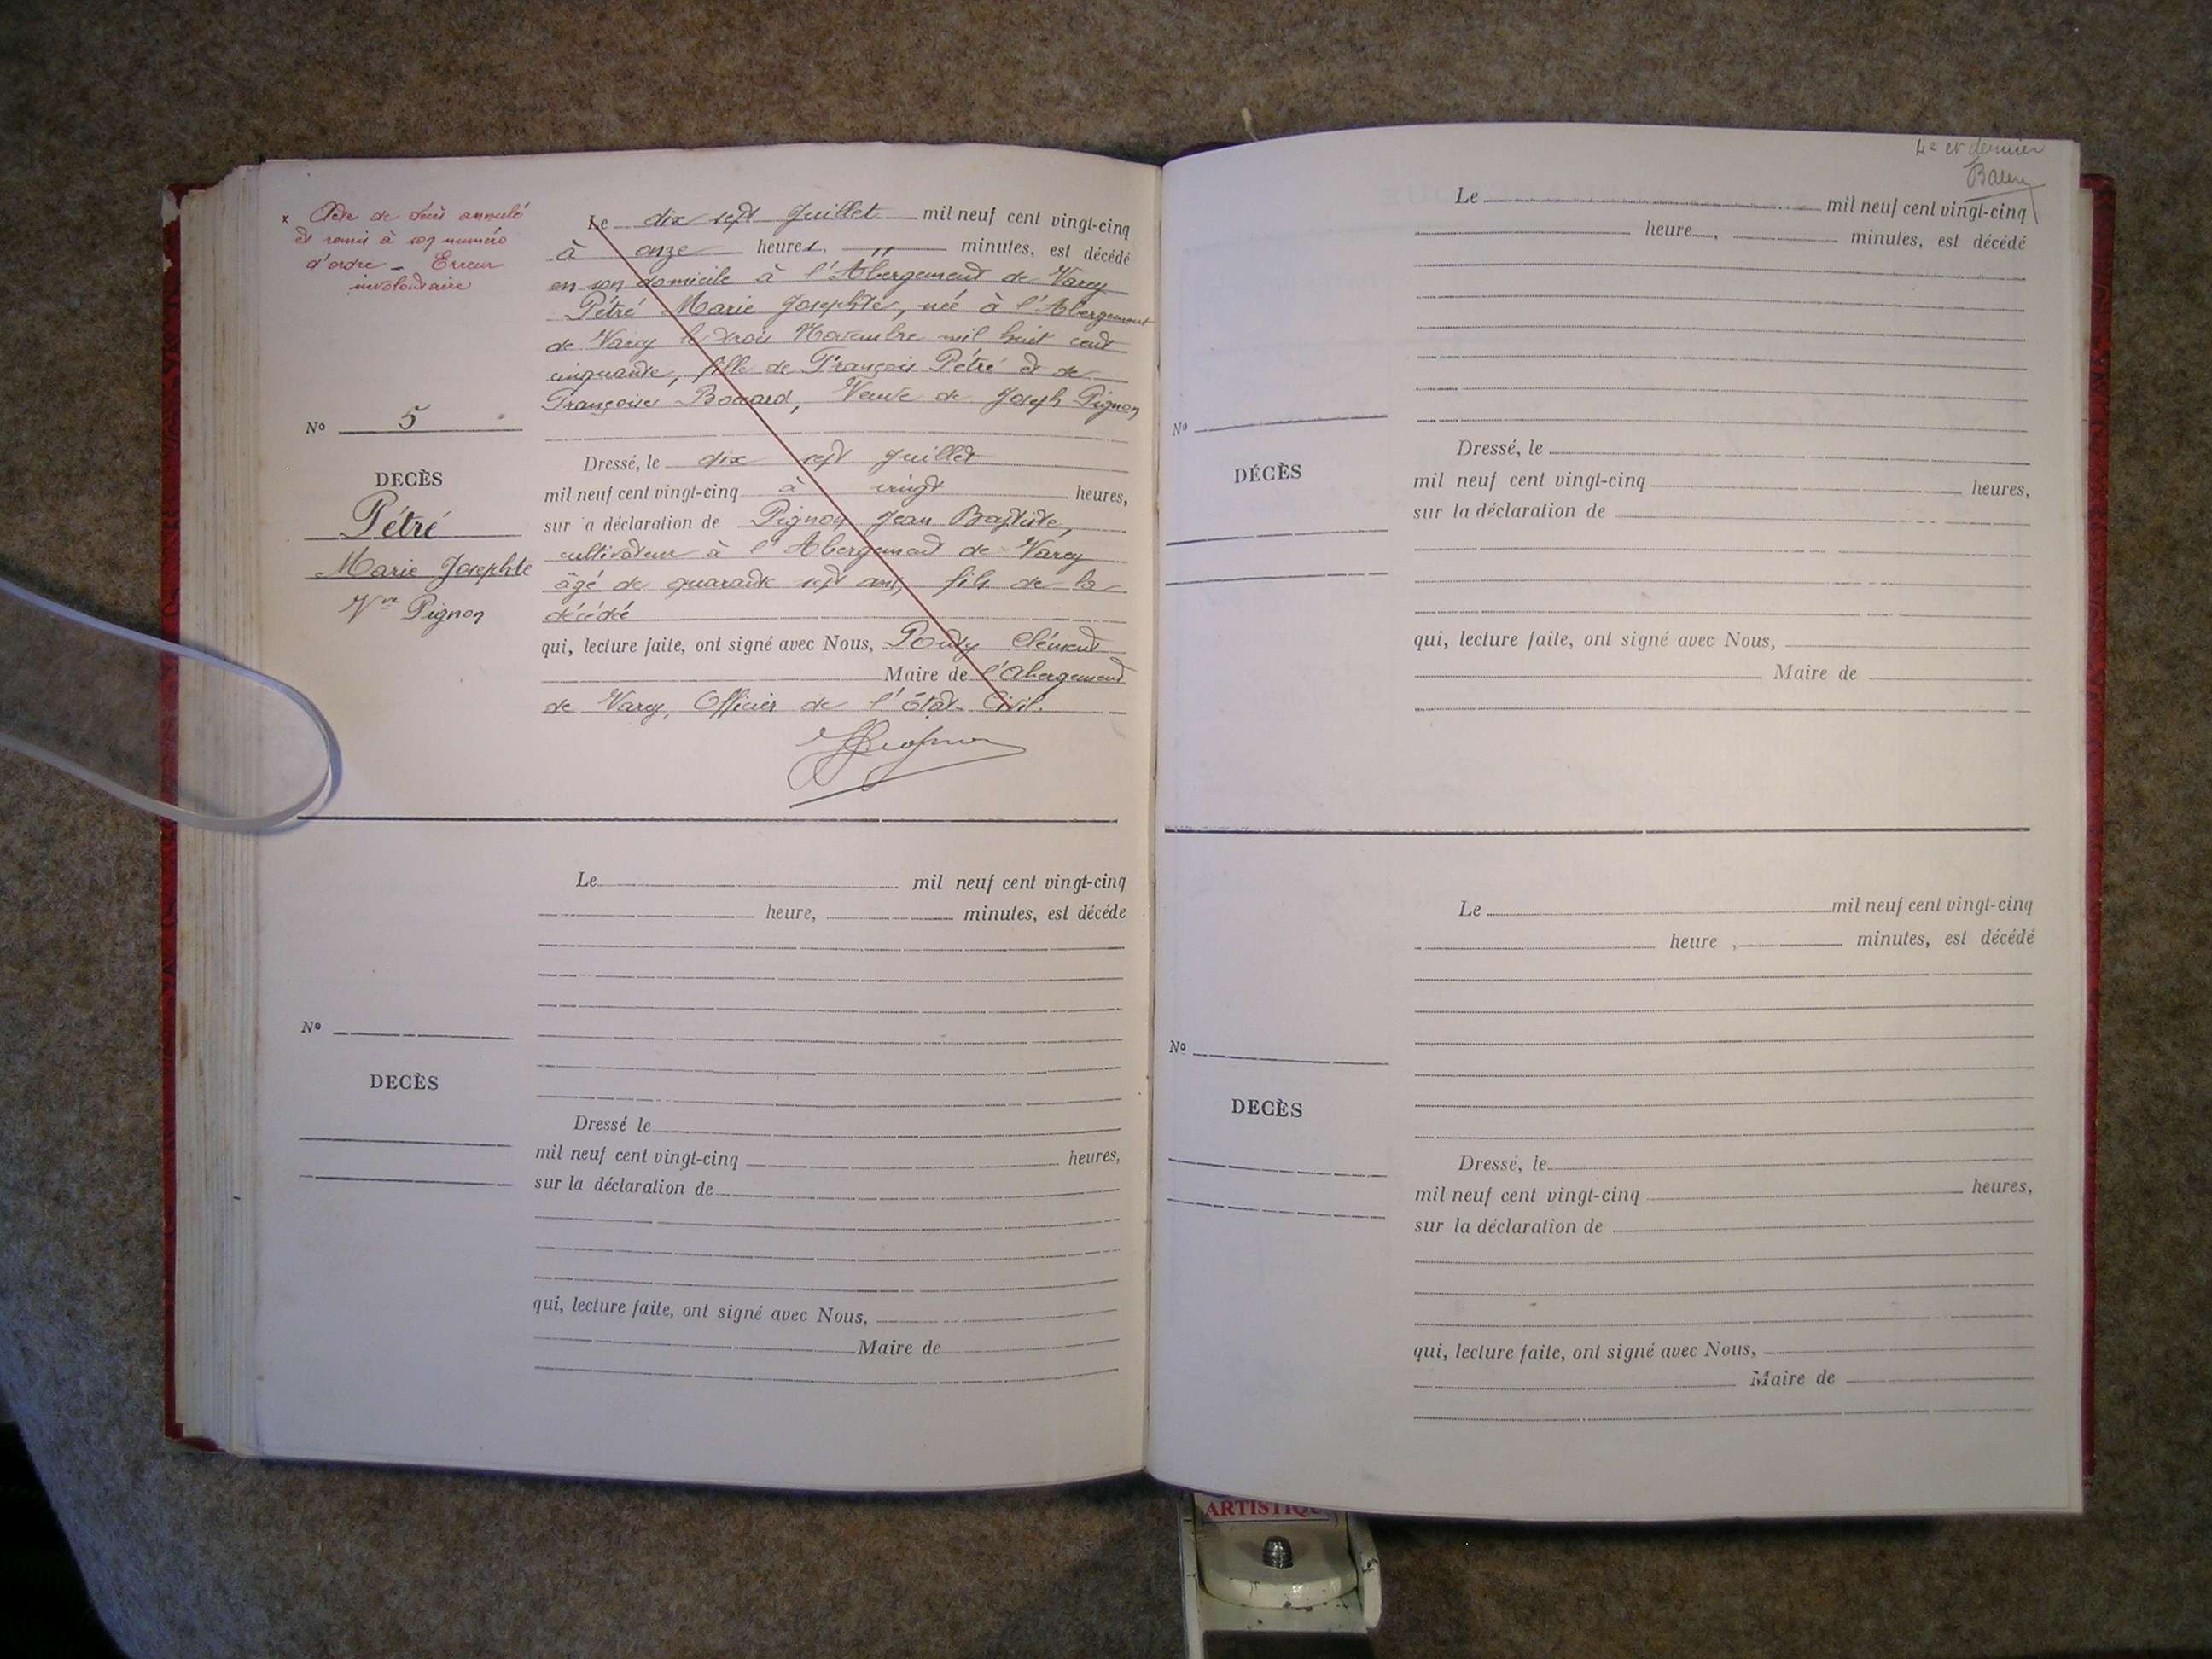 x Acte de décès annulé
et remis à son numéro
d'ordre - Erreur
involontaire
No 5
DECÈS
Pétré
Marie Josephte
Vve Pignon
Le dix sept Juillet mil neuf cent vingt-cinq
à onze heures, " minutes, est décédé
en son domicile à l'Abergement de Varey
Pétré Marie Josephte, née à l'Abergement
de Varey le trois Novembre mil huit cent
cinquante, fille de François Pétré et de
Françoise Bocard, Veuve de Joseph Pignon
Dressé, le dix sept Juillet
mil neuf cent vingt-cinq à vingt heures,
sur a déclaration de Pignon Jean Baptiste,
cultivateur à l'Abergement de Varey
âgé de quarante sept ans, fils de la
décédée
qui, lecture faite, ont signé avec Nous, Clément
Maire de l'Abergement
de Varey, Officier de l'état Civil.
Le mil neuf cent vingt-cinq
heure, minutes, est décéde
No
DECÈS
Dressé le
mil neuf cent vingt-cinq heures,
sur la déclaration de
qui, lecture faite, ont signé avec Nous,
Maire de
4e et dernier
Le mil neuf cent vingt-cinq
heure , minutes, est décédé
No
DÉCÈS
Dressé, le
mil neuf cent vingt-cinq heures,
sur la déclaration de
qui, lecture faite, ont signé avec Nous,
Maire de
Le mil neuf cent vingt-cinq
heure , minutes, est décédé
No
DECÈS
Dressé, le
mil neuf cent vingt-cinq heures,
sur la déclaration de
qui, lecture faite, ont signé avec Nous,
Maire de